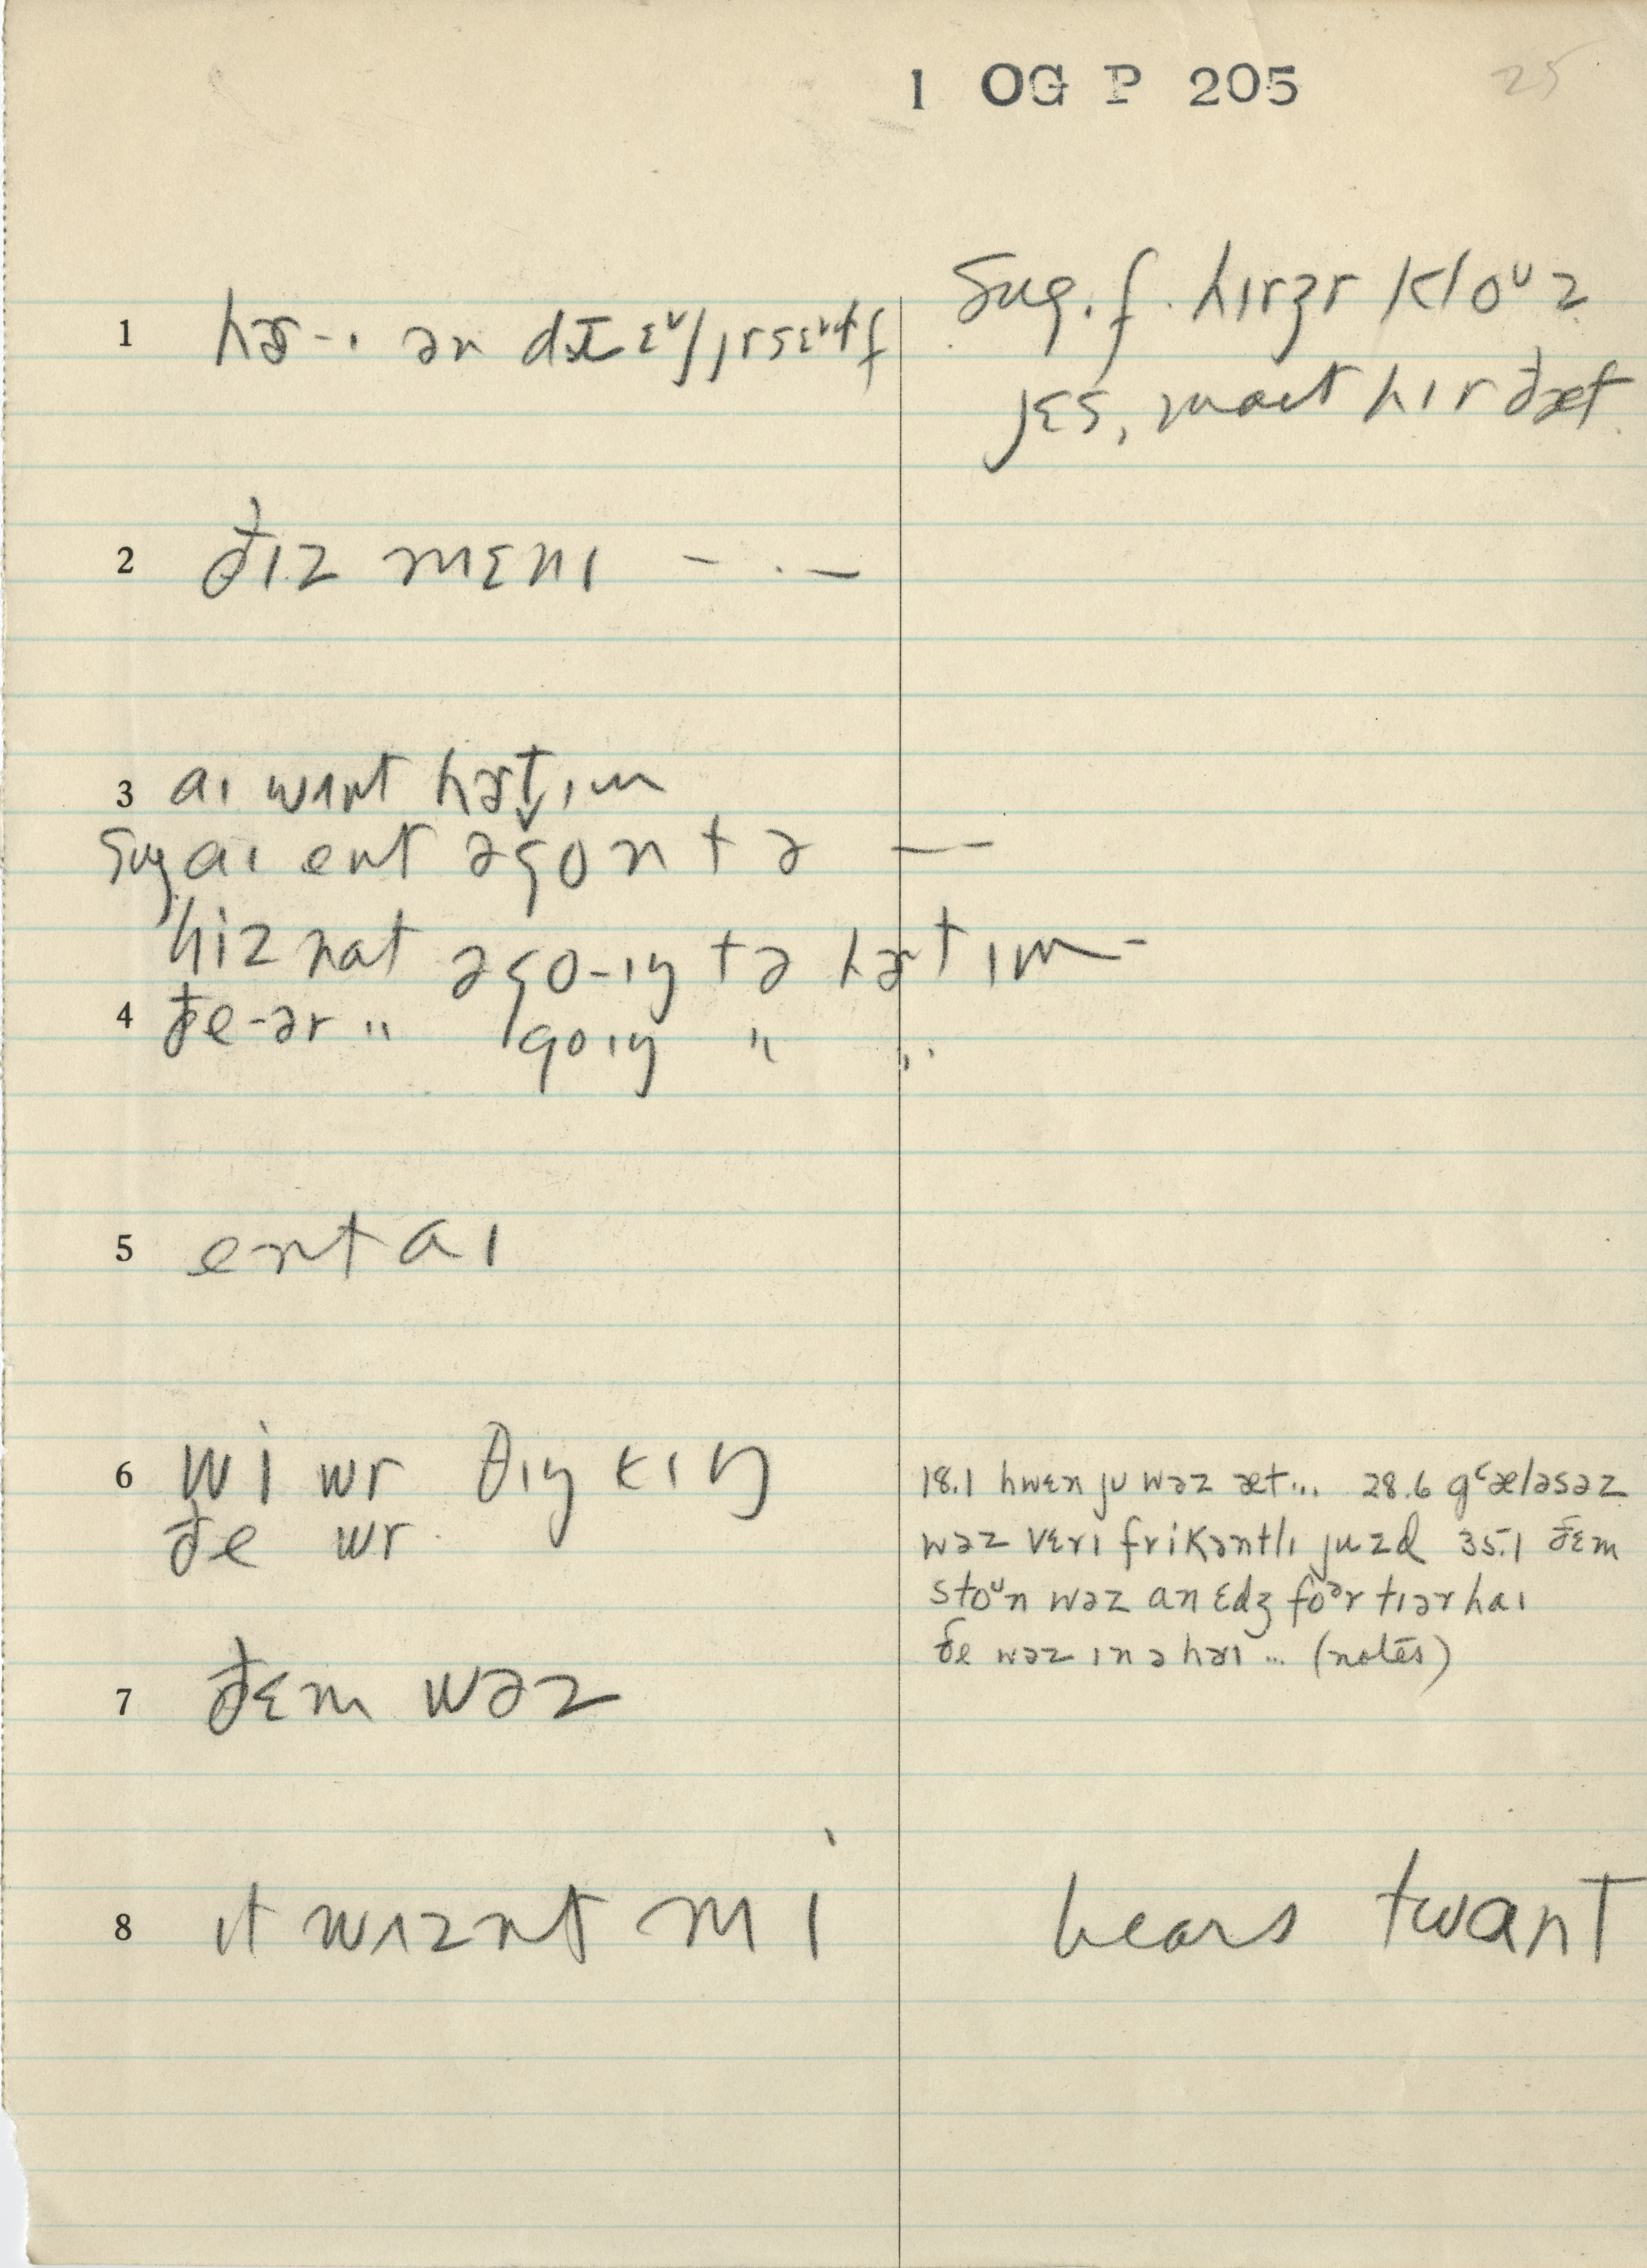 1 OG P 205 25
Sug. f. hɪrʒr kloᵘz
1 hɚ-ɪ ən
jɛs, maət hɪr ðæt
2 ðɪz mɛnɪ - . -
3 aɪ wʌnt hɚt ɪm
Sug aɪ ent əgon tə --
hiz nat əgo-ɪŋ tə hɚt ɪm-
4 ðe-ər " goɪŋ " "
5 ent aɪ
6 wi wr θɪŋkɪŋ
ðe wr
18.1 hwɛn jʊ wəz æt... 28.6 gˤæləsəz
wəz vɛrɪ frikəntlɪ juzd 35.1 ðɛm
stoᵘn wəz an ɛdʒ foᵊr tɪər haɪ
ðe wəz ɪn ə hɚɪ ... (notes)
7 ðɛm wəz
8 ɪt wʌznt mi hears twant